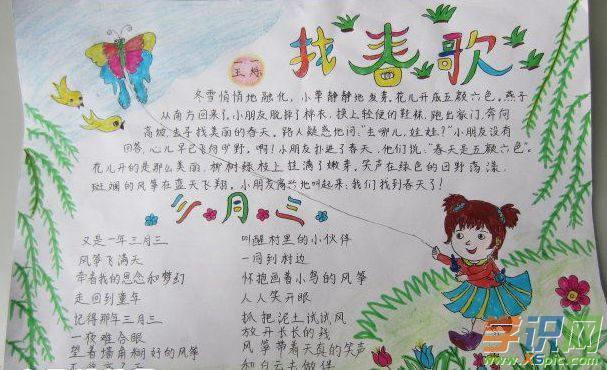 找春歌
王
冬雪悄悄地融化，小草静静地发芽。花儿开成五颜六色。燕子
从南方回来了。小朋友脱掉了棉衣，换上轻便的鞋袜，跑出家门，奔向
高坡，去寻找美丽的春天。路人疑惑地问："去哪儿，娃娃？"小朋友没有
回答，心儿早已飞向郊野。啊！小朋友扑进了春天，他们说："春天是五颜六色"。
花儿开的是那么美丽，柳树绿枝上挂满了嫩芽。笑声在绿色的田野荡漾，
斑斓的风筝在蓝天飞翔。小朋友高兴地叫起来：我们找到春天了！
三月三
又是一年三月三
风筝飞满天
带着我的思念和梦幻
走回到童年
记得那年三月三
一夜难合眼
望着墙角糊好的风筝
叫醒村里的小伙伴
一同到村边
怀抱画着小鸟的风筝
人人笑开眼
抓把泥土试试风
放开长长的线
风筝带着天真的笑声
和白云去做伴
学识网
www.XSpic.com